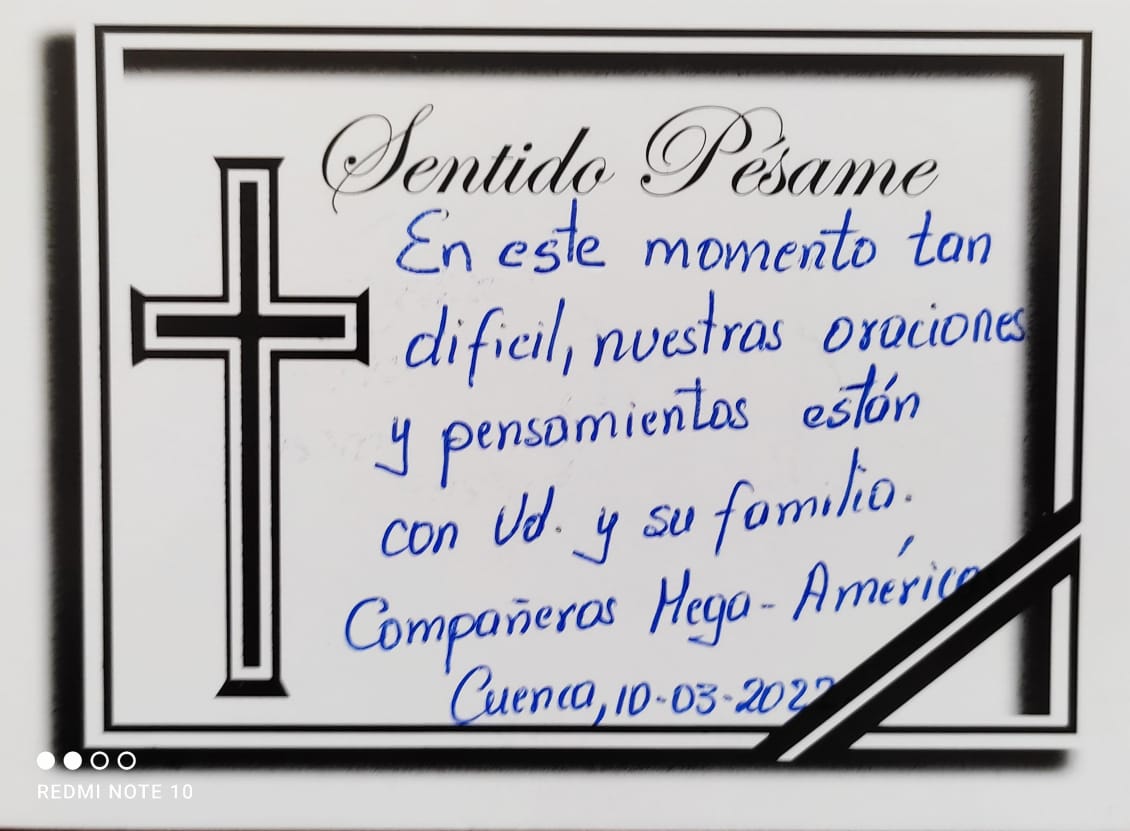 Sentido Pésame
En este momento tan
dificil, nuestras oraciones
y pensamientos están
con Ud. y su familia.
Compañeros Mega-América
Cuenca, 10-03-2022
REDMI NOTE 10